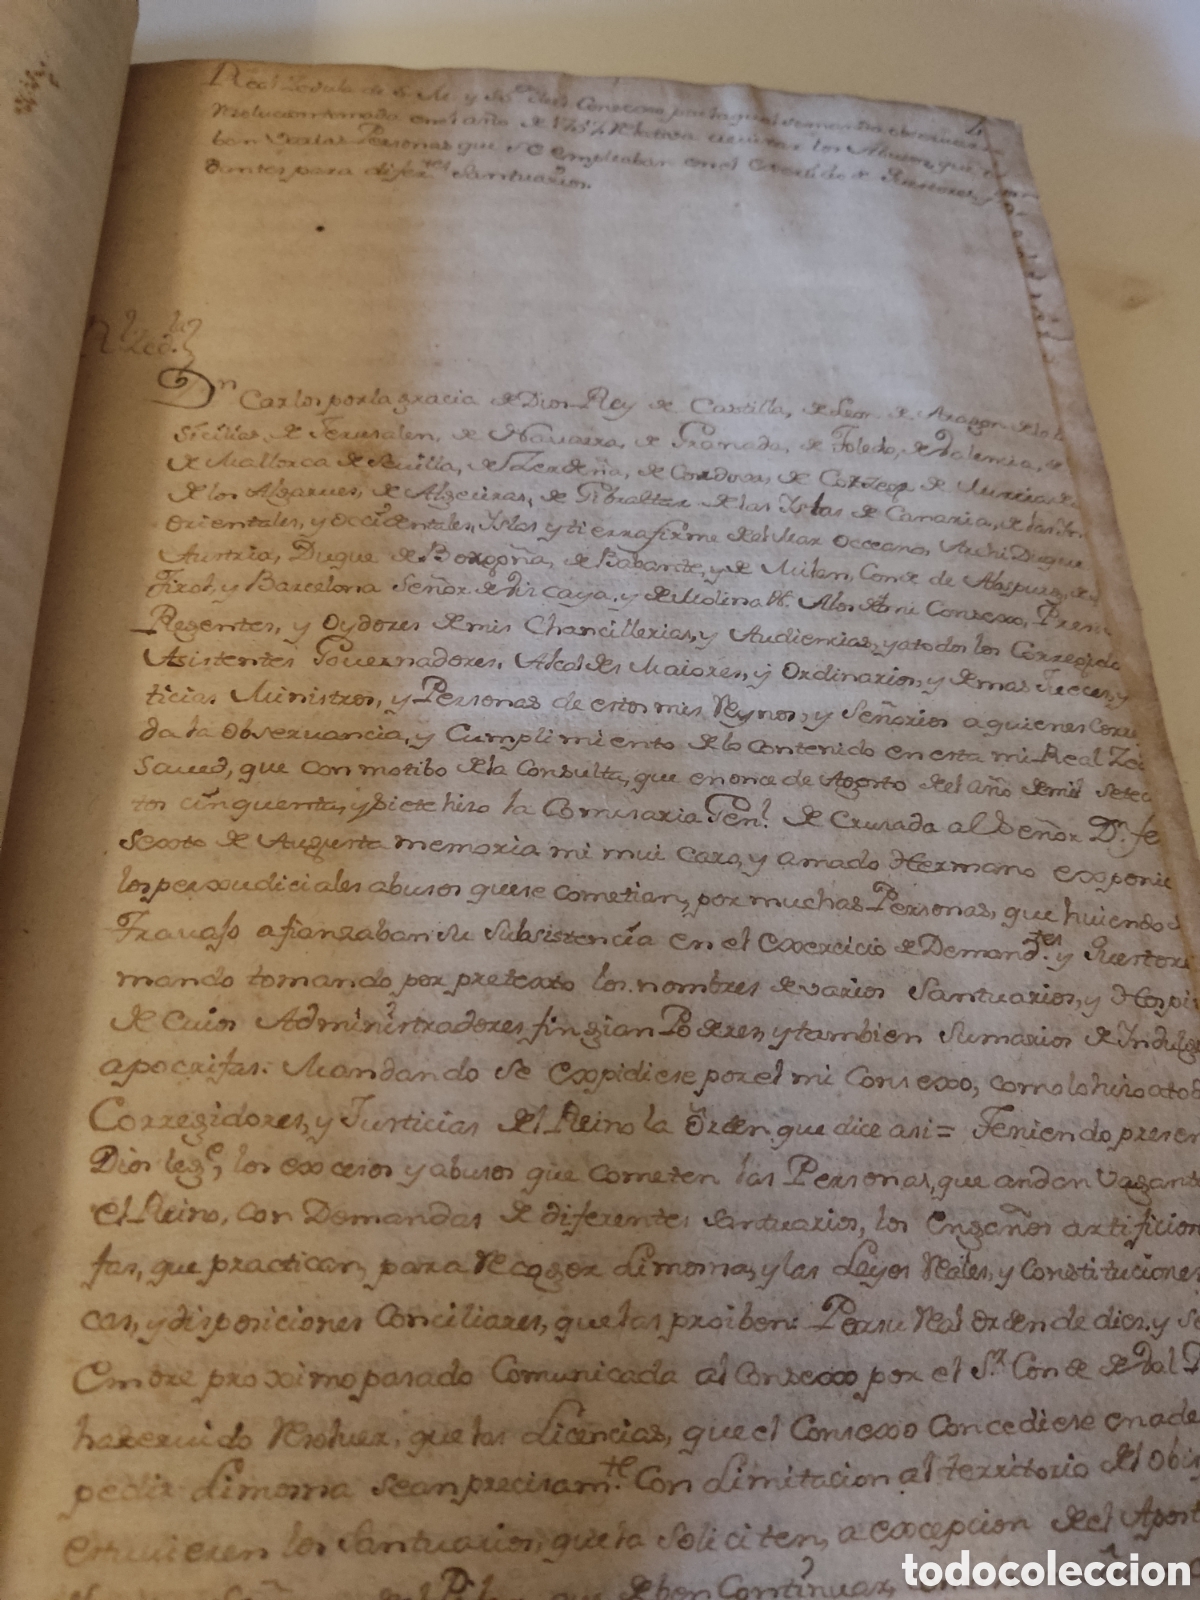 Real Zedula de S. M. y Sres. del Consexo por la qual se manda observar la
Resolucion tomada en el año de 1757 relativa a evitar los Abusos, que
ban varias Personas que se empleaban en el Exercicio de Questores, y
dantes para difertes. Santuarios.
Rl. Zedla.
Dn Carlos por la gracia de Dios Rey de Castilla, de Leon de Aragon de las
Sicilias, de Jerusalen, de Navarra, de Granada, de Toledo, de Valencia, de
de Mallorca de Sevilla, de Zerdeña, de Cordova, de Corzega de Murcia de
de los Algarves, de Algeciras, de Gibraltar de las Yslas de Canaria, de las In
Orientales, y Occidentales, Yslas y tierrafirme del Mar Occeano, Archi Duque
Austria, Duque de Borgoña, de Babante, y de Milan, Conde de Abspurg, de
Tirol, y Barcelona Señor de Vizcaya, y de Molina &. A los de mi Consexo, Presi
Regentes, y Oydores de mis Chancillerias, y Audiencias, y a todos los Corregido
Asistentes Governadores, Alcaldes Maiores, y Ordinarios, y demas Jueces, y
ticias Ministros, y Personas de estos mis Reynos, y Señorios a quienes corres
da la Observancia, y Cumplimiento de lo contenido en esta mi Real Zed
Saved, que con motibo de la Consulta, que en once de Agosto del año de mil setec
tos cinquenta, y siete hizo la Comisaria Genl. de Cruzada al Señor Dn. fe
Sexto de Augusta memoria mi mui caro, y amado Hermano exponie
los perxudiciales abusos que se cometian, por muchas Personas, que huiendo d
Travajo afianzaban su Subsistencia en el Exercicio de Demandtes. y Questore
mando tomando por pretexto los nombres de varios Santuarios, y Hospi
de cuios Administradores fingian Poderes, y tambien Sumarios de Indulg
apocrifas. Mandando se expidiese por el mi Consexo, como lo hizo a tod
Corregidores, y Justicias del Reino la Orden que dice asi = Teniendo presen
Dios lege, los excesos y abusos que cometen las Personas, que andan vagant
el Reino, con Demandas de diferentes Santuarios, los Engaños artificios
fas, que practican, para Recoger Limosna, y las Leyes Reales, y Constitucione
cas, y disposiciones Conciliares, que las proiben: Por su Real Orden de diez y se
Embre proximo pasado Comunicada al Consexo por el Sr. Conde de Val
ha servido Resolver, que las Licencias, que el Consexo Concediese en ade
pedir Limosna sean precisamte. Con Limitacion al territorio del Obis
estuvieren los Santuarios, que la Soliciten, a excepcion del Apost
del Pilar, que deben Continuar,
todocoleccion